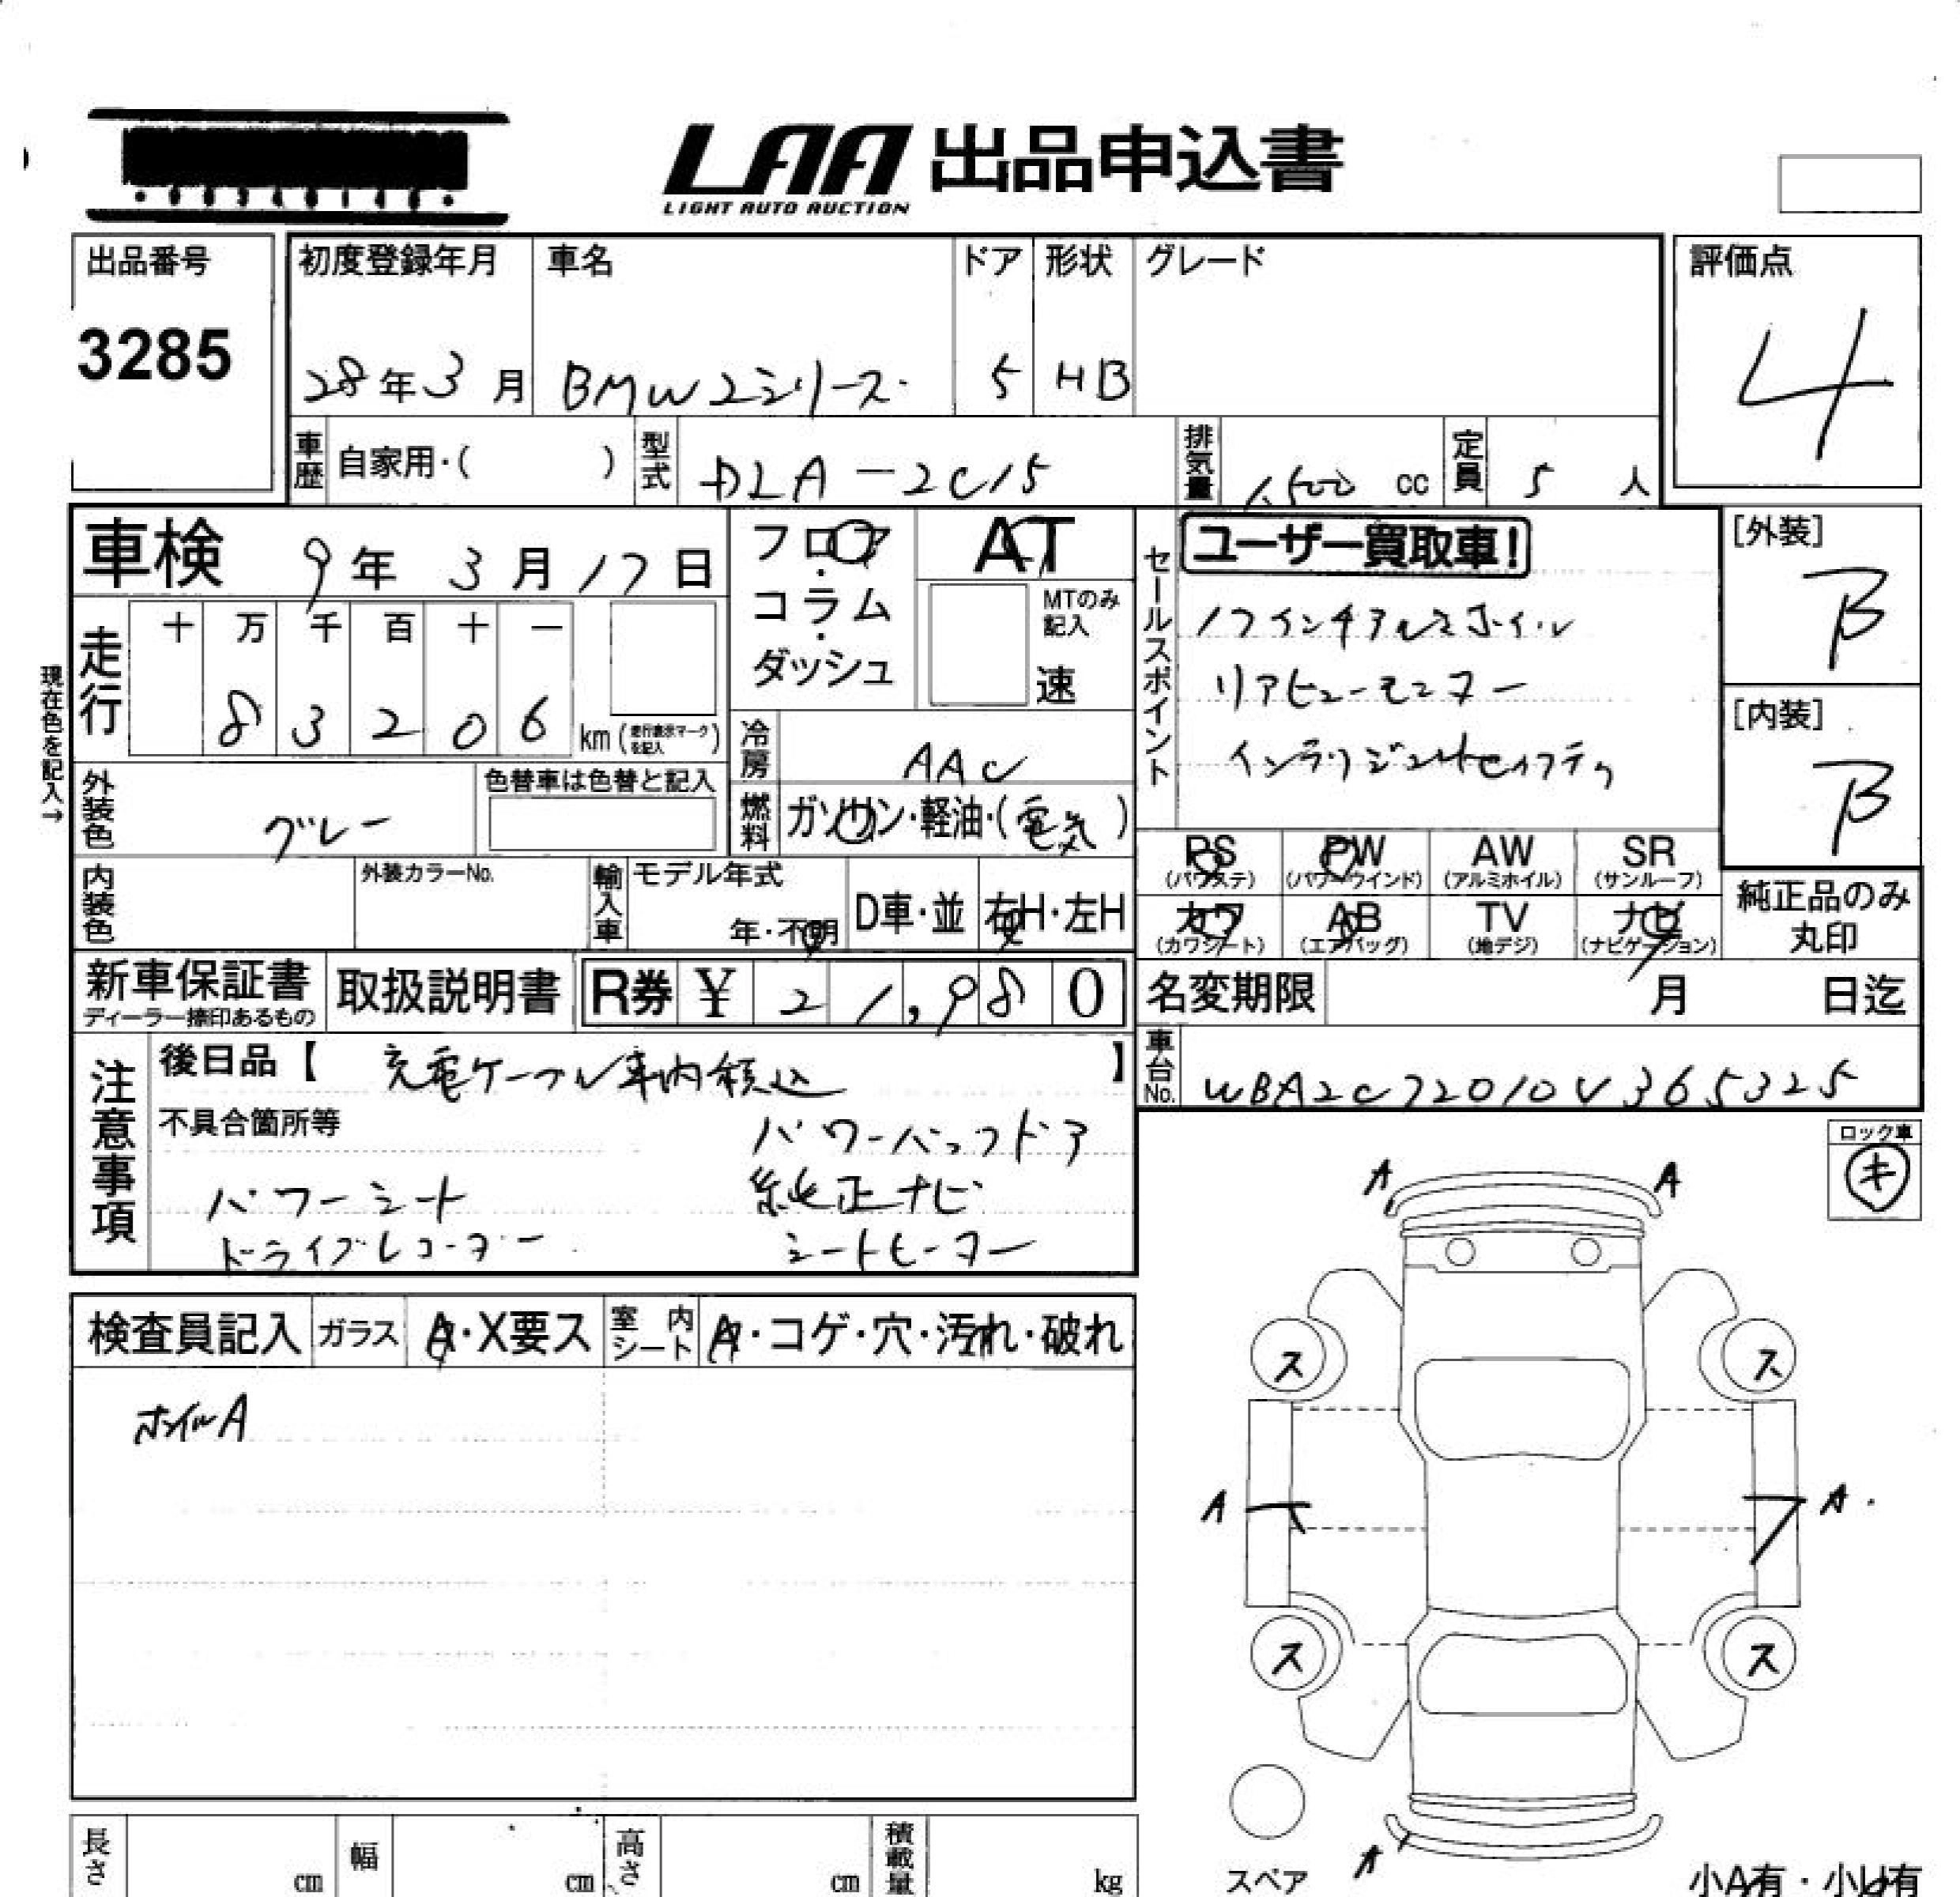 LAA 出品申込書
LIGHT AUTO AUCTION
出品番号
3285
初度登録年月
28年3月
車名
BMW2シリーズ
ドア
5
形状
HB
グレード
評価点
4
車歴 自家用・( )
型式 DLA-2C15
排気量 1,500 cc
定員 5 人
車検 9年 3月 17日
走行
十 万 千 百 十 一
8 3 2 0 6 km (走行表示マークを記入)
現在色を記入→
外装色 グレー
色替車は色替と記入
内装色
外装カラーNo.
フロア・コラム・ダッシュ
AT
MTのみ記入
速
冷房 AAC
燃料 ガソリン・軽油・(電気)
輸入車 モデル年式
年・不明
D車・並 右H・左H
セールスポイント
ユーザー買取車!
17インチアルミホイル
リアビューモニター
インテリジェントセイフティ
[外装]
B
[内装]
B
PS (パワステ) PW (パワーウインド) AW (アルミホイル) SR (サンルーフ)
カワ (カワシート) AB (エアバッグ) TV (地デジ) ナビ (ナビゲーション)
純正品のみ丸印
新車保証書
ディーラー捺印あるもの
取扱説明書
R券 ¥ 21,980
名変期限 月 日迄
車台No. WBA2C72010V365325
注意事項
後日品【 充電ケーブル車内積込 】
不具合箇所等
パワーバックドア
パワーシート 純正ナビ
ドライブレコーダー シートヒーター
ロック車
キ
検査員記入 ガラス A・X要ス 室内シート A・コゲ・穴・汚れ・破れ
ホイルA
A A
ス ス
A A
ス ス
A
スペア
小A有・小U有
長さ cm 幅 cm 高さ cm 積載量 kg